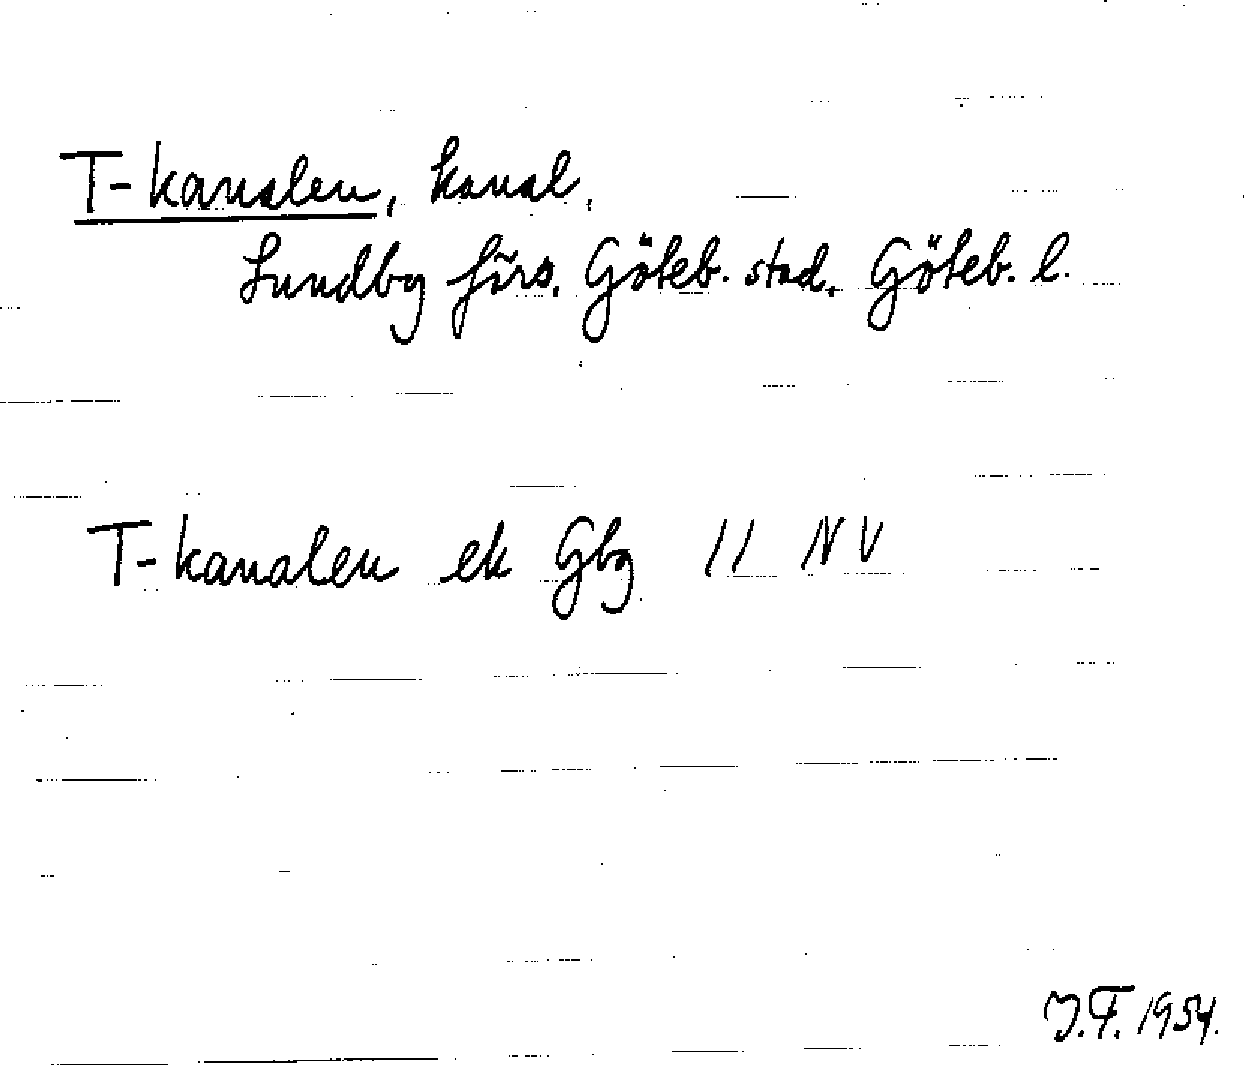 T-kanalen, kanal,
Lundby förs. Göteb. stad. Göteb. l.
T-kanalen ek Gbg 11 NV
J.F. 1954.